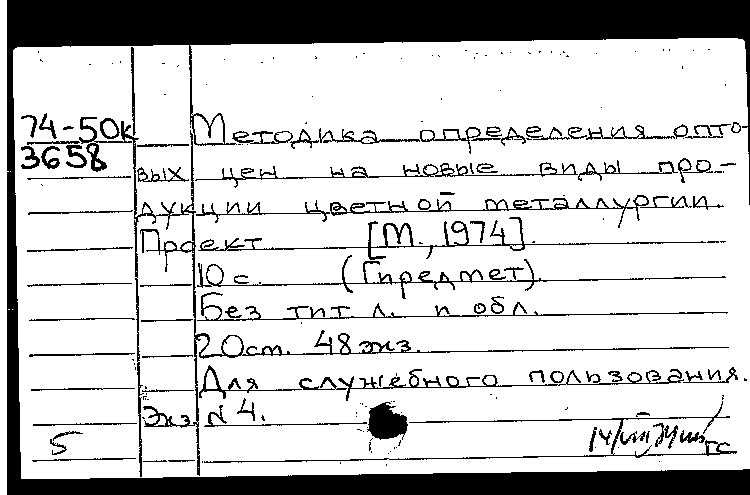 74-50к Методика определения опто-
3658
вых цен на новые виды про-
дукции цветной металлургии.
Проект [М., 1974].
10 с. (Гиредмет).
Без тит. л. и обл.
20 ст. 48 экз.
Для служебного пользования.
Экз. N 4.
5
ГС